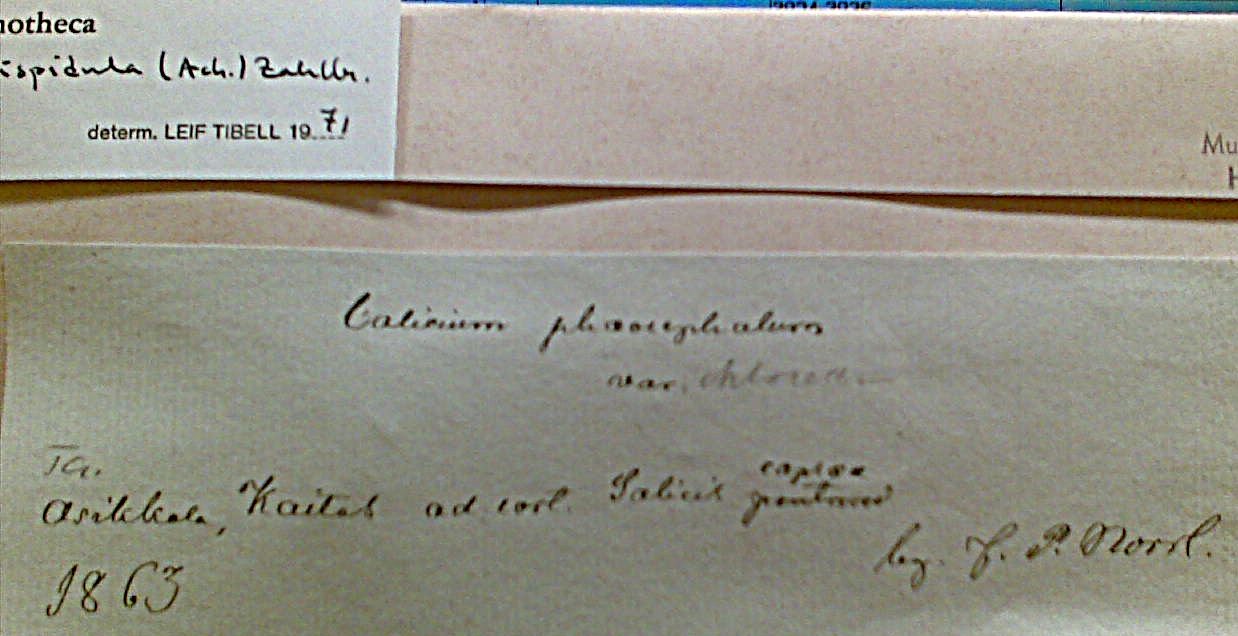 notheca
ispidula (Ach.) Zahlbr.
determ. LEIF TIBELL 1971
Mu
H
Calicium phaeocephalum
var.
Ta.
capreæ
Asikkala, Kaitas ad cort. Salicis pentandræ
leg. J. P. Norrl.
1863